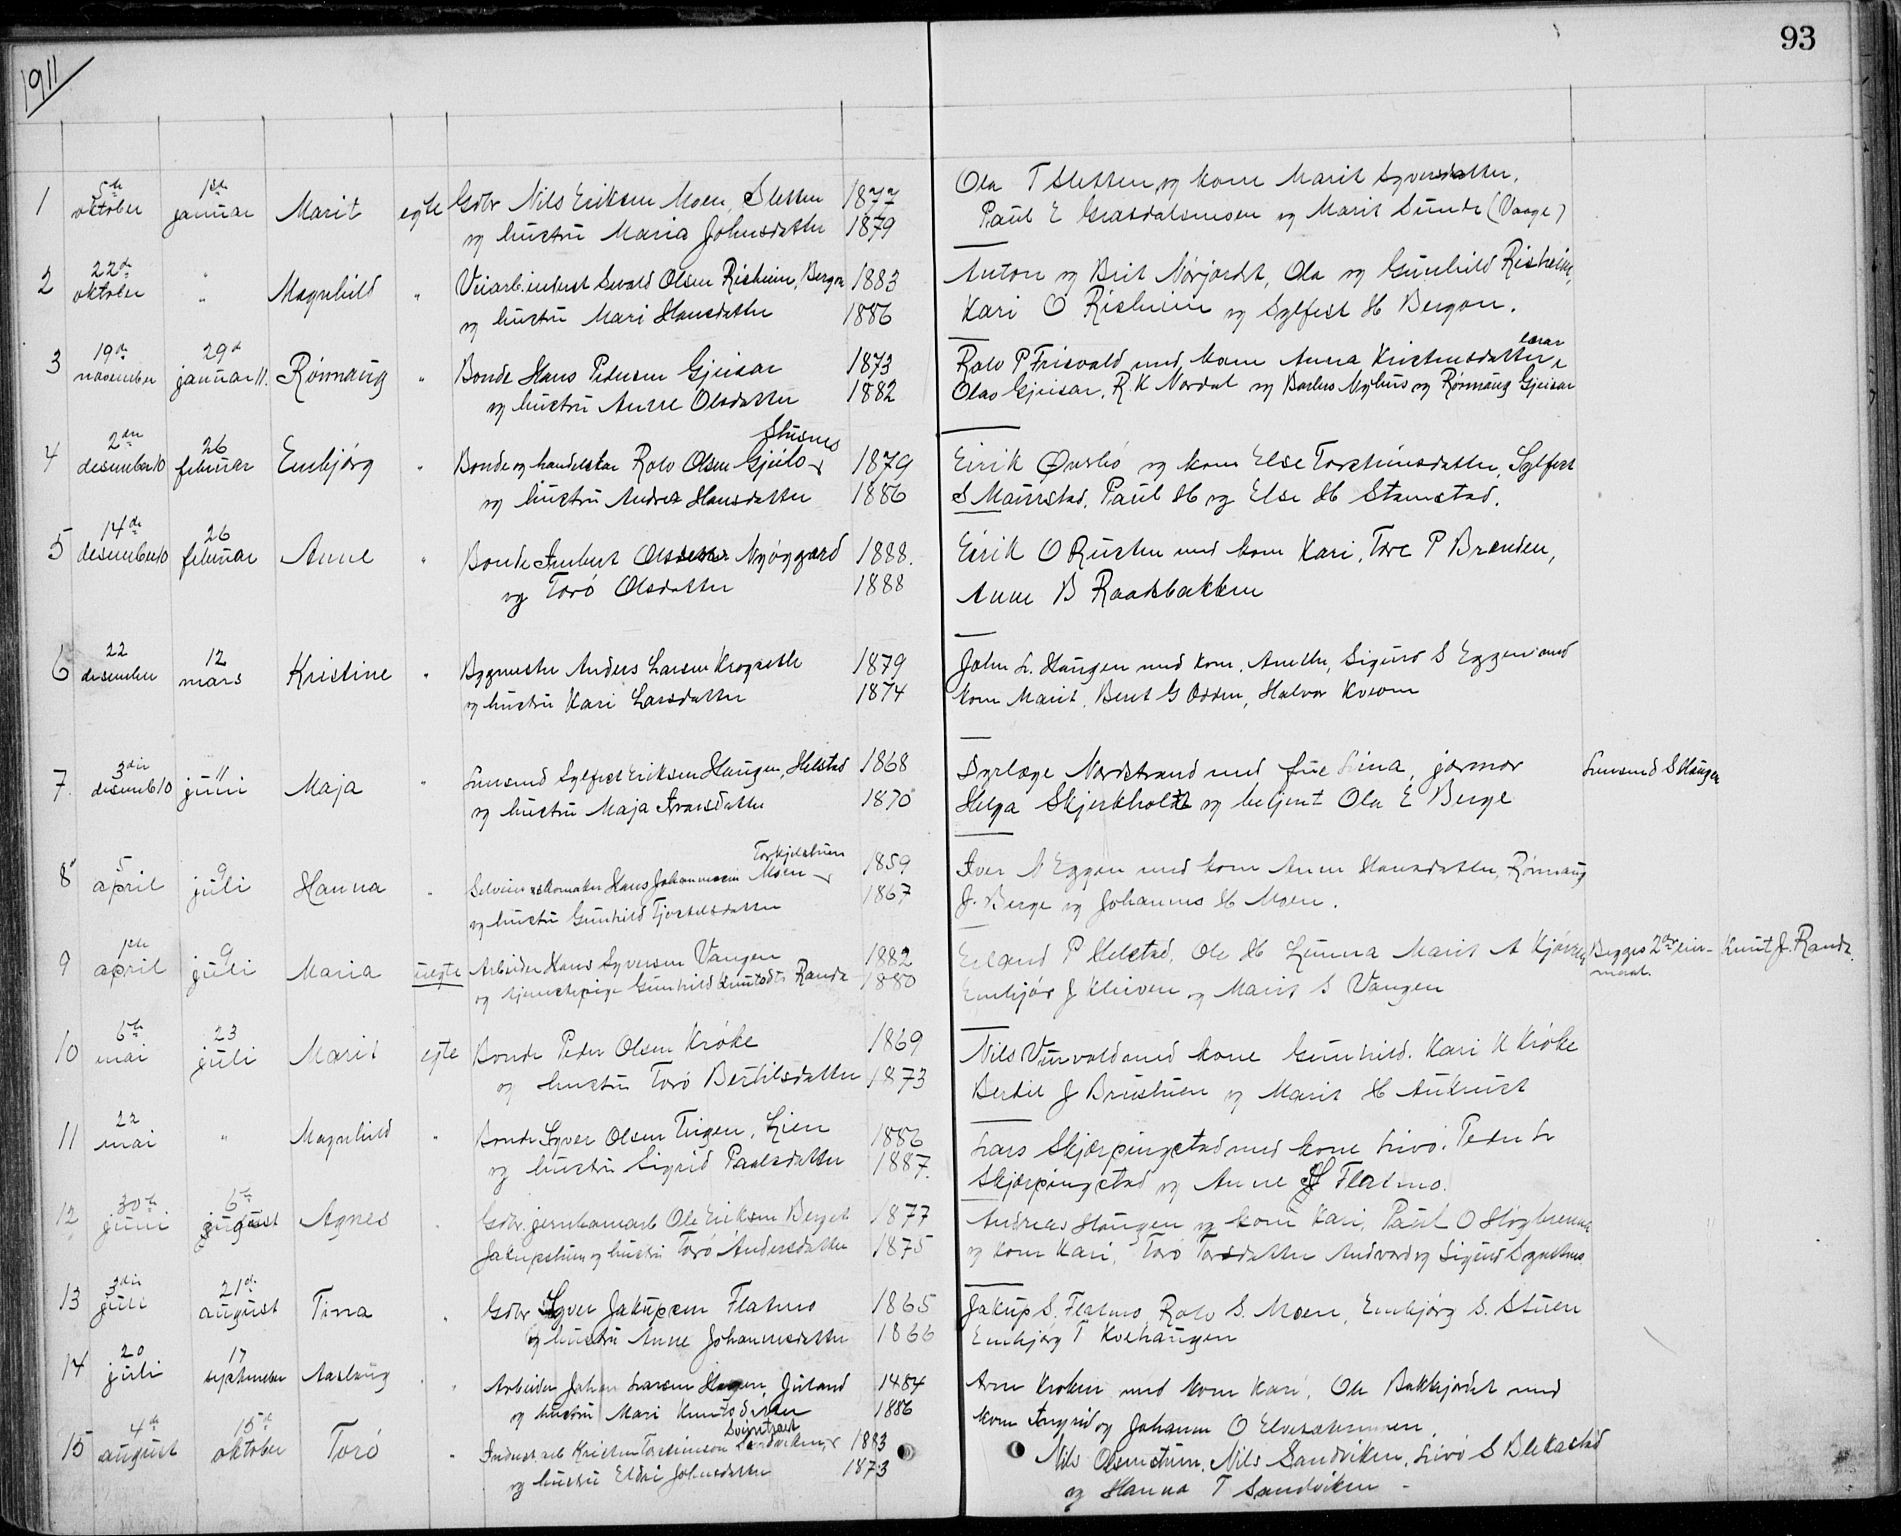 93
1911
1 5te oktober 1ste januar Marit egte Gdbr Nils Eriksen Moen, Sletten 1877
og hustru Maria Johnsdatter 1879
Ola T Sletten og kone Marit Syversdatter.
Paul E Graasdalsmoen og Marit Sunde (Vaage)
2 22de oktober " Magnhild " Veiarb. inderst Sevald Olsen Risheim, Bergom 1883
og hustru Mari Hansdatter 1886
Anton og Brit Nørjordt, Ola og Gunhild Risheim,
Kari O Risheim og Sylfest H Bergom.
3 19de november 29de januar 11. Rønnaug " Bonde Hans Pedersen Gjeisar 1873
og hustru Anne Olsdatter 1882
Rolv P Frisvold med kone Anna Kristensdatter, lærar
Olav Gjeisar, R. K Nordal og Barbro Nyhus og Rønnaug Gjeisar
4 2den desember 10 26 februar Embjørg " Bonde og handelskar Rolv Olsen Gjeilo Stusnes 1879
og hustru Andrea Hansdatter 1886
Eirik Øverbø og kone Else Torsteinsdatter, Sylfest
S Maurstad, Paul H og Else H Stamstad.
5 14de desember 10 26 februar Anne " Bonde Imbert Olsen Nyøygard 1888.
og Torø Olsdatter 1888
Eirik O Rusten med kone Kari, Tore P Brænden,
Anne B Raadsbakken
6 22 desember 12 mars Kristine " Bygmester Anders Larsen Krogsæth 1879
og hustru Kari Larsdatter 1874
John L. Haugen med kone, Anette, Sigurd S Eggen med
kone Marit, Beret G Odden, Halvor Kvoom
7. 3die desemb 10 11 juni Maja " Lensmd Sylfest Eriksen Haugen, Helstad 1868
og hustru Maja Iversdatter 1870
Dyrlæge Nordstrand med frue Lina, jormor
Helga Skjerkholdt og betjent Ola E Berge
Lensmd S Haugen
8 5 april 9 juli Hanna " Selveier skomaker Hans Johannessen Moen Torkjelstuen 1859
og hustru Gunhild Tjostelsdatter 1867
Iver N Eggen med kone Anne Hansdatter, Rønnaug
J. Berge og Johannes H Moen.
9 1ste april 9 juli Maria uegte Arbeider Hans Syversen Vangen 1882
og tjenestepige Gunhild Knutsdtr Randa 1880
Erland P Helstad, Ole H Lunna Marit A Kjørrem
Embjør J Kleiven og Marit S Vangen
Begges 2det leiermaal. Knut J. Randa.
10 6te mai 23 juli Marit egte Bonde Peder Olsen Krøke 1869
og hustru Torø Bertilsdatter 1873
Nils Uurvold med kone Gunhild. Kari K Krøke
Bertil J Brustuen og Marit H Aukrust
11 22 mai " Magnhild " Bonde Syver Olsen Teigen, Lien 1886
og hustru Sigrid Paalsdatter 1887.
Lars Skjærpingstad med kone Livø. Peder L
Skjærpingstad og Anne H Flatmo.
12 30te juni 6te august Agnes " Gdbr. jernbanearb Ole Eriksen Berget 1877
Jakupstuen og hustru Torø Andersdatter 1875
Andreas Haugen og kone Kari, Paul O Høgbrenna
og kone Kari, Torø Torsdatter Andvord og Sigurd Synstnes
13 3die juli 21de august Tina " Gdbr Syver Jakupsen Flatmo 1865
og hustru Anne Johannesdatter 1866
Jakup S. Flatmo, Rolv S. Moen, Embjørg S. Stuen
Embjørg T Kvehaugen
14 20 juli 17 september Aaslaug " Arbeider Johan Larsen Hagen, Juland 1484
og hustru Mari Knutsdatter 1886
Arne Kroken med kone Kari, Ole Bakkjordet med
kone Ingrid og Johanne O Elvesæter.
15 4de august 15de oktober Torø " Inderst, arb Kristen Torsteinson Sandviken 1883
og hustru Eldri Johnsdatter 1873
Nils Olsenstuen, Nils Sandviken, Livø S Blekastad
og Hanna T Sandviken